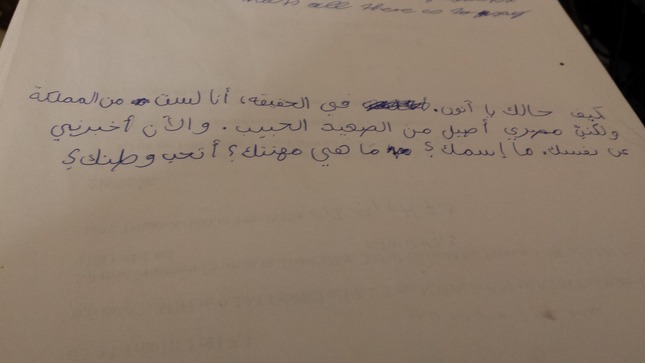 that's all there is to say
كيف حالك يا آتون. في الحقيقة، أنا لست من المملكة
ولكني مصري أصيل من الصعيد الحبيب. والآن أخبرني
عن نفسك. ما إسمك؟ ما هي مهنتك؟ أتحب وطنك؟